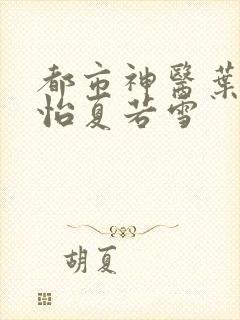 都市神醫葉
怡夏若雪
胡夏